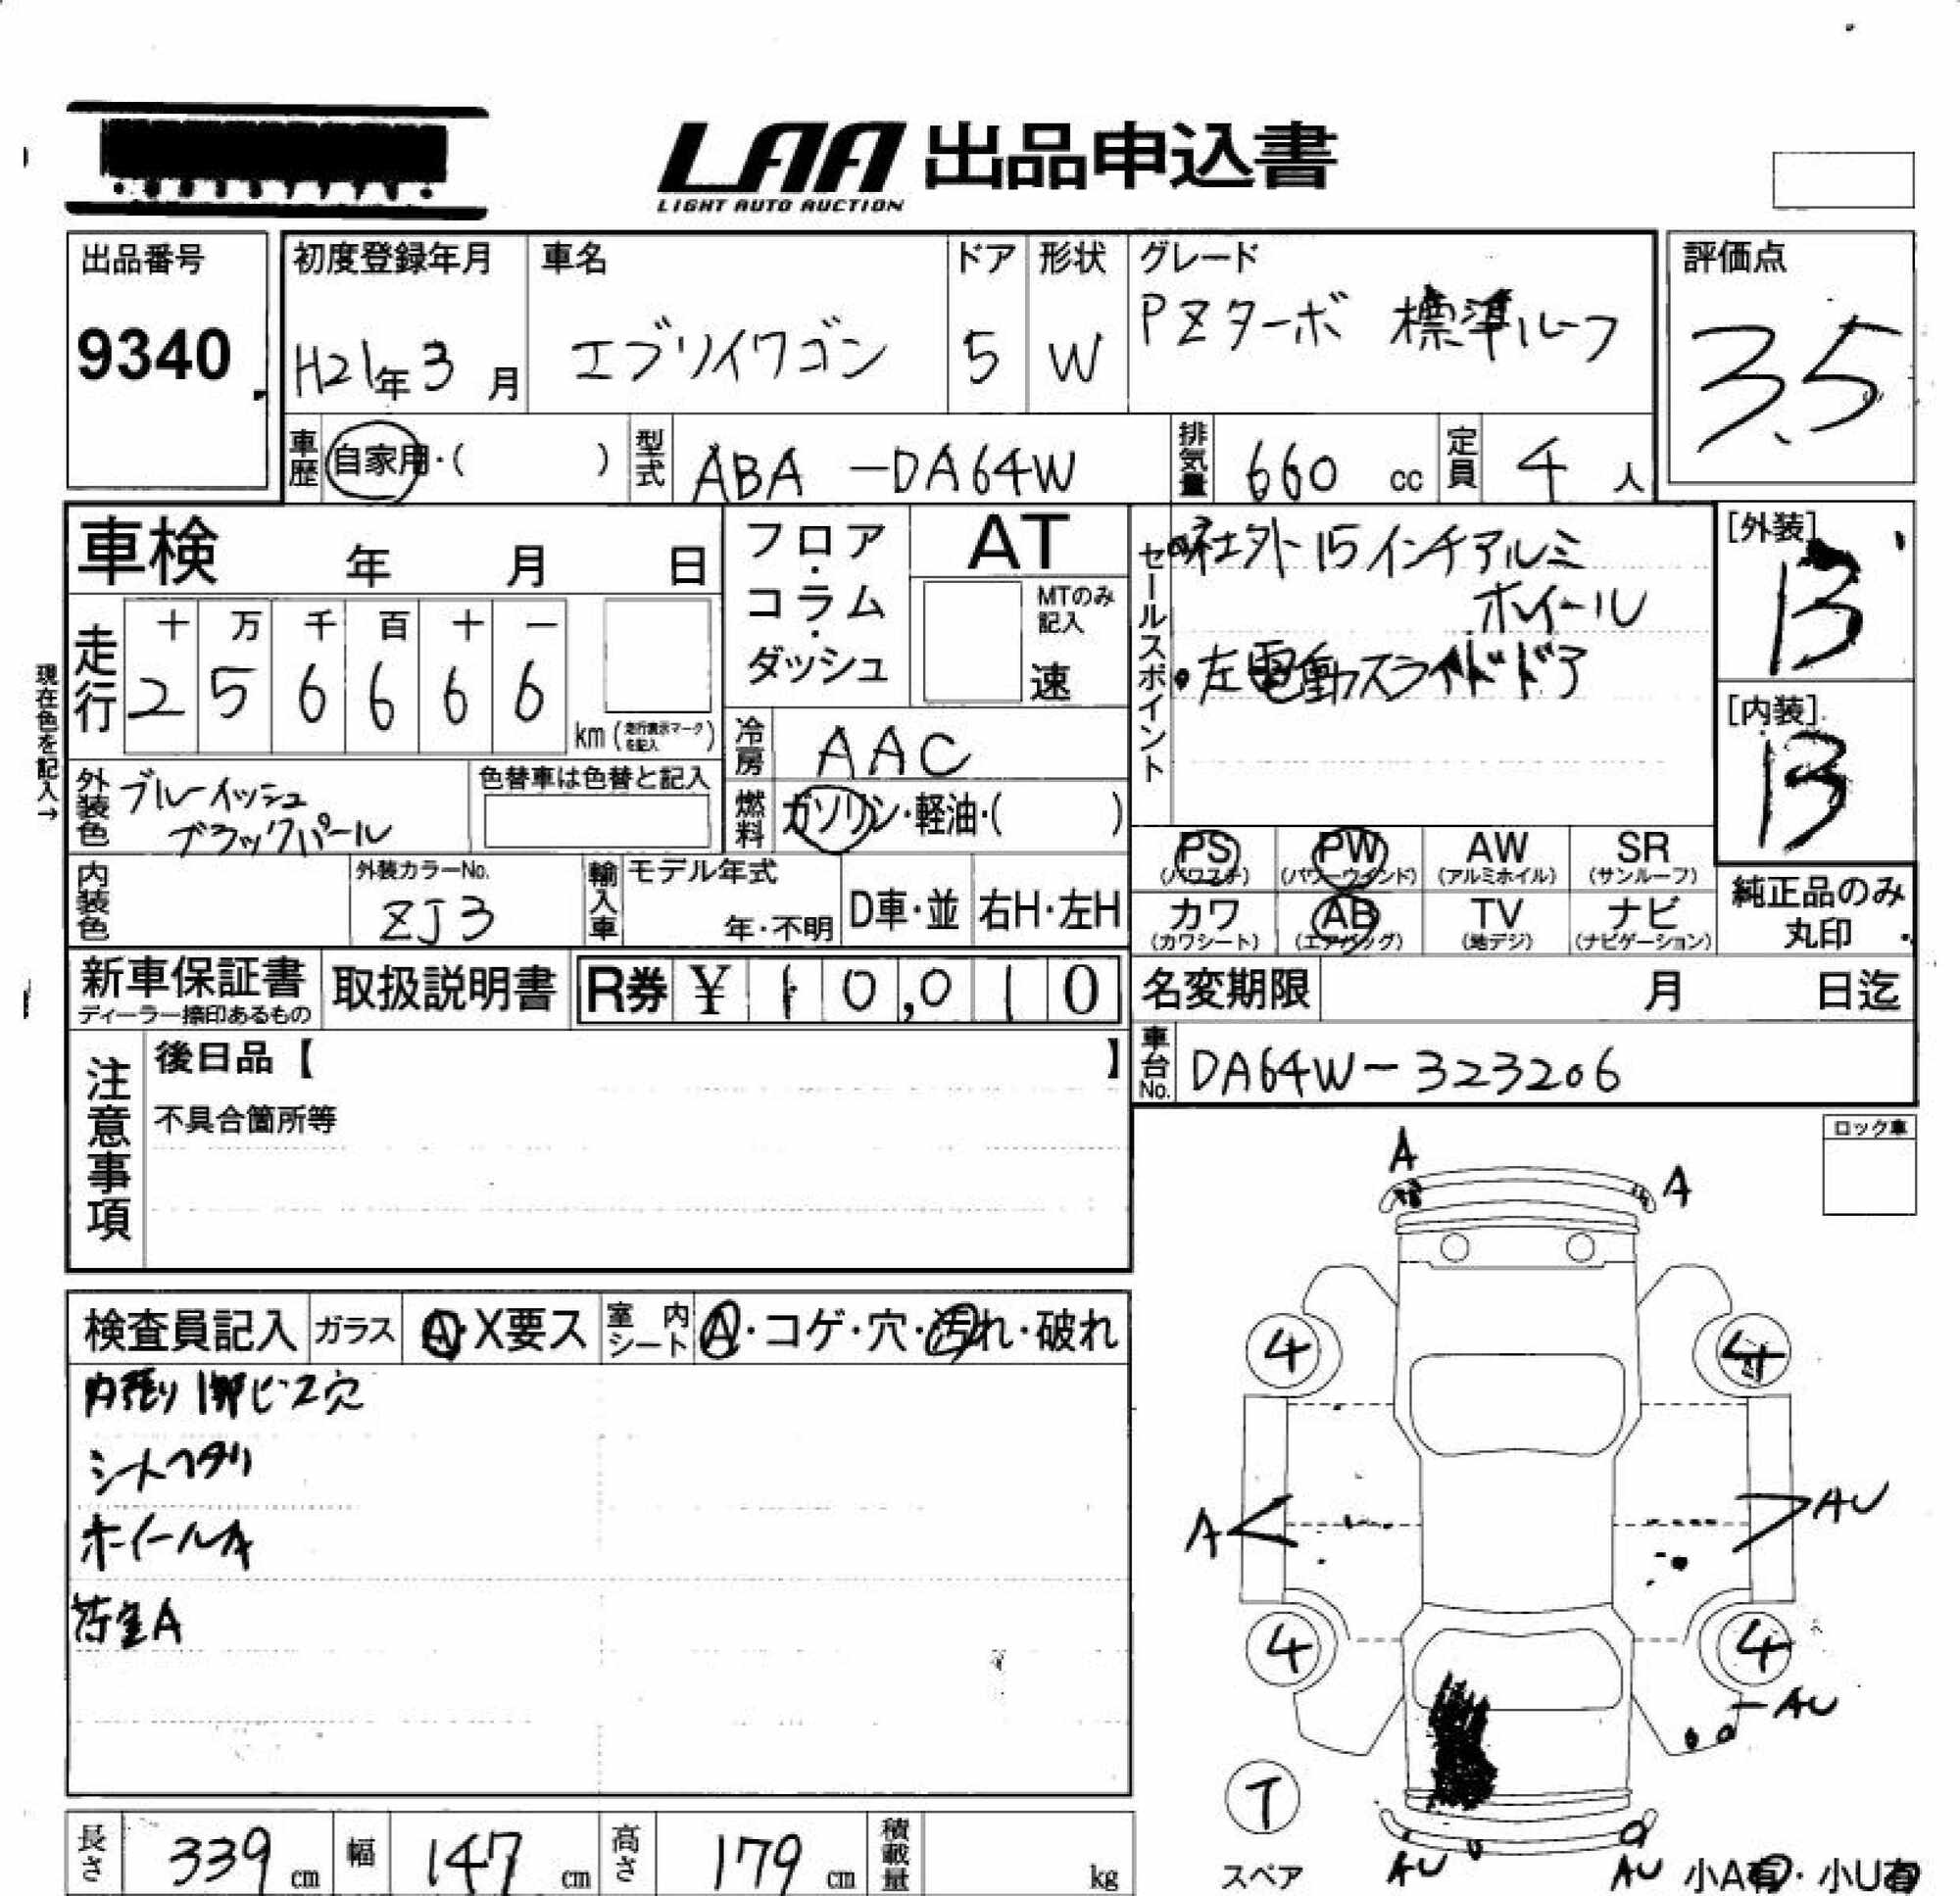 LAA 出品申込書
LIGHT AUTO AUCTION
出品番号
9340
初度登録年月
H21年3月
車名
エブリイワゴン
ドア
5
形状
W
グレード
PZターボ 標準ルーフ
評価点
3.5
車歴
自家用・( )
型式
ABA-DA64W
排気量
660 cc
定員
4人
車検 年 月 日
走行
十 万 千 百 十 一
2 5 6 6 6 6
km (走行表示マークを記入)
現在色を記入→
外装色
ブルーイッシュ
ブラックパール
色替車は色替と記入
内装色
外装カラーNo.
ZJ3
フロア・
コラム・
ダッシュ
AT
MTのみ
記入
速
冷房
AAC
燃料
ガソリン・軽油・( )
輸入車
モデル年式
年・不明
D車・並
右H・左H
セールスポイント
・社外15インチアルミ
ホイール
・左電動スライドドア
[外装]
B
[内装]
B
PS
(パワステ)
PW
(パワーウインド)
AW
(アルミホイル)
SR
(サンルーフ)
カワ
(カワシート)
AB
(エアバッグ)
TV
(地デジ)
ナビ
(ナビゲーション)
純正品のみ
丸印
新車保証書
ディーラー捺印あるもの
取扱説明書
R券 ¥ 10,010
名変期限 月 日迄
車台No.
DA64W-323206
注意事項
後日品【 】
不具合箇所等
ロック車
検査員記入
ガラス
A・X要ス
室内
シート
A・コゲ・穴・汚れ・破れ
内張り 1部ビス穴
シートヘタリ
ホイールA
荷室A
A
A
4
4
A
AU
4
4
AU
T
スペア
AU
AU
小A有・小U有
長さ
339 cm
幅
147 cm
高さ
179 cm
積載量
kg